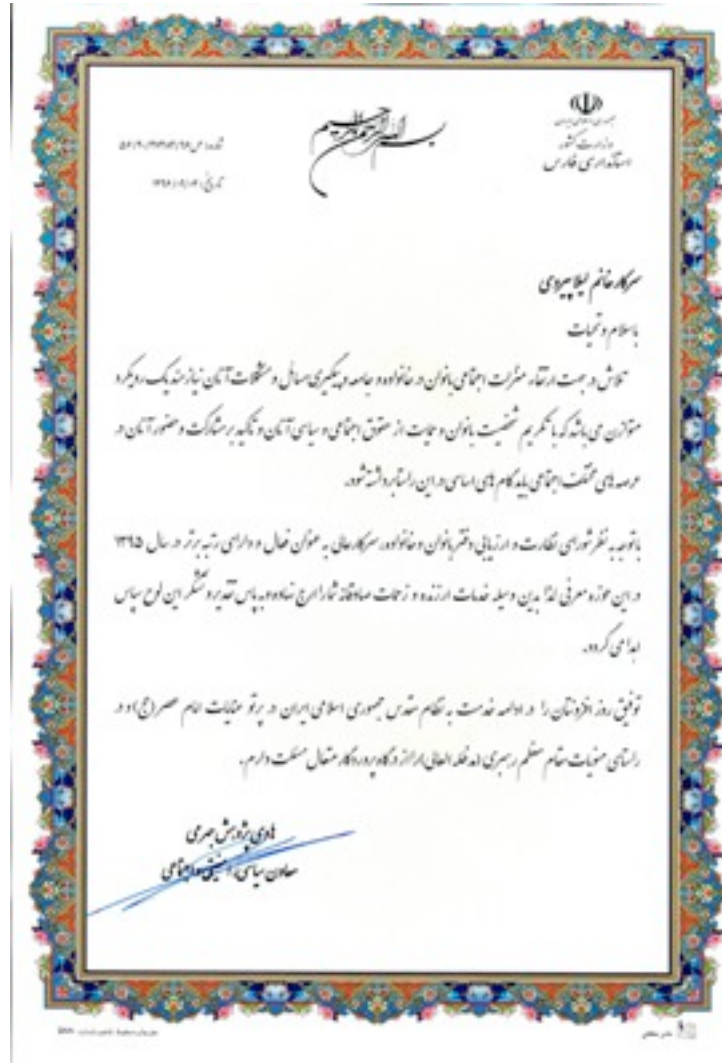 بسم الله الرحمن الرحیم
جمهوری اسلامی ایران
وزارت کشور
استانداری فارس
شماره:
تاریخ:
سرکار خانم لیلا پیروی
با سلام و تحیات
تلاش در جهت ارتقاء منزلت اجتماعی بانوان در خانواده و جامعه و پیگیری مسائل و مشکلات آنان نیازمند یک رویکرد
متوازن می باشد که با تکریم شخصیت بانوان و حمایت از حقوق اجتماعی و سیاسی آنان و تاکید بر مشارکت و حضور آنان در
عرصه های مختلف اجتماعی باید گام های اساسی در این راستا برداشته شود.
با توجه به نظر شورای نظارت و ارزیابی دفتر بانوان و خانواده، سرکارعالی به عنوان فعال و دارای رتبه برتر در سال ۱۳۹۵
در این حوزه معرفی لذا بدین وسیله خدمات ارزنده و زحمات صادقانه شما را ارج نهاده و به پاس تقدیر و تشکر این لوح سپاس
اهدا می گردد.
توفیق روز افزونتان را در ادامه خدمت به نظام مقدس جمهوری اسلامی ایران در پرتو عنایات امام عصر (عج) و در
راستای منویات مقام معظم رهبری (مد ظله العالی) را از درگاه پروردگار متعال مسئلت دارم.
هادی پژوهش جهرمی
معاون سیاسی، امنیتی و اجتماعی